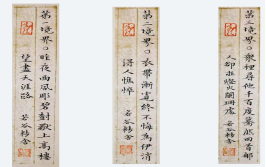 第一境界○昨夜西風凋碧樹獨上高樓
望盡天涯路
若谷
第二境界○衣帶漸寬終不悔為伊消
得人憔悴
若谷
第三境界○衆裡尋他千百度驀然回首那
人却在燈火闌珊處
若谷